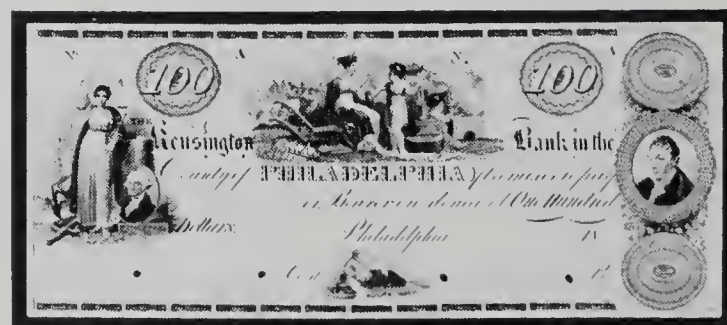 100 100
Kensington Bank in the
County of PHILADELPHIA promise to pay
or Bearer on demand One Hundred
Dollars Philadelphia 18